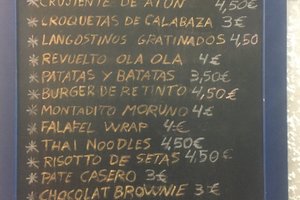 * CRUJIENTE DE ATÚN 4,50€
* CROQUETAS DE CALABAZA 3€
* LANGOSTINOS GRATINADOS 4,50
* REVUELTO OLA OLA 4€
* PATATAS Y BATATAS 3,50€
* BURGER DE RETINTO 4,50€
* MONTADITO MORUNO 4€
* FALAFEL WRAP 4€
* THAI NOODLES 4,50€
* RISOTTO DE SETAS 4,50€
* PATE CASERO 3€
* CHOCOLAT BROWNIE 3€